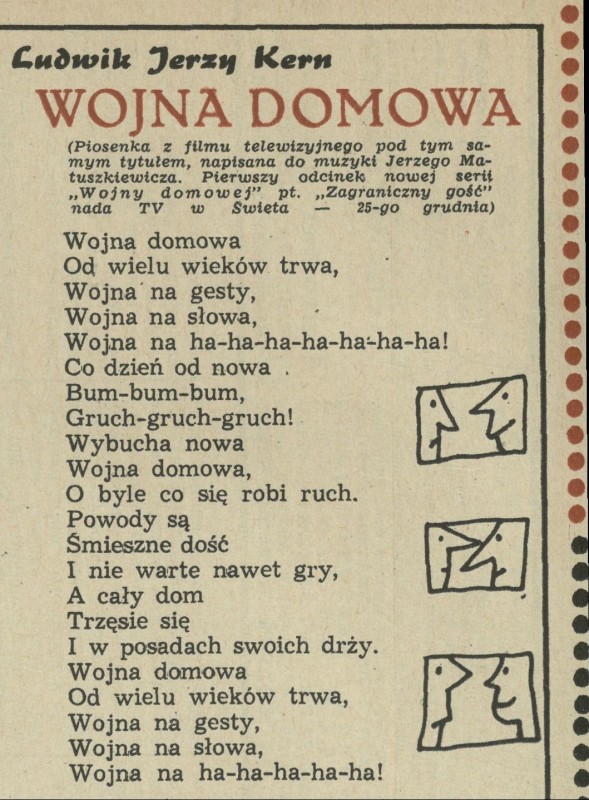 Ludwik Jerzy Kern
WOJNA DOMOWA
(Piosenka z filmu telewizyjnego pod tym sa-
mym tytułem, napisana do muzyki Jerzego Ma-
tuszkiewicza. Pierwszy odcinek nowej serii
„Wojny domowej” pt. „Zagraniczny gość”
nada TV w Święta — 25-go grudnia)
Wojna domowa
Od wielu wieków trwa,
Wojna na gesty,
Wojna na słowa,
Wojna na ha-ha-ha-ha-ha-ha-ha!
Co dzień od nowa
Bum-bum-bum,
Gruch-gruch-gruch!
Wybucha nowa
Wojna domowa,
O byle co się robi ruch.
Powody są
Śmieszne dość
I nie warte nawet gry,
A cały dom
Trzęsie się
I w posadach swoich drży.
Wojna domowa
Od wielu wieków trwa,
Wojna na gesty,
Wojna na słowa,
Wojna na ha-ha-ha-ha-ha!